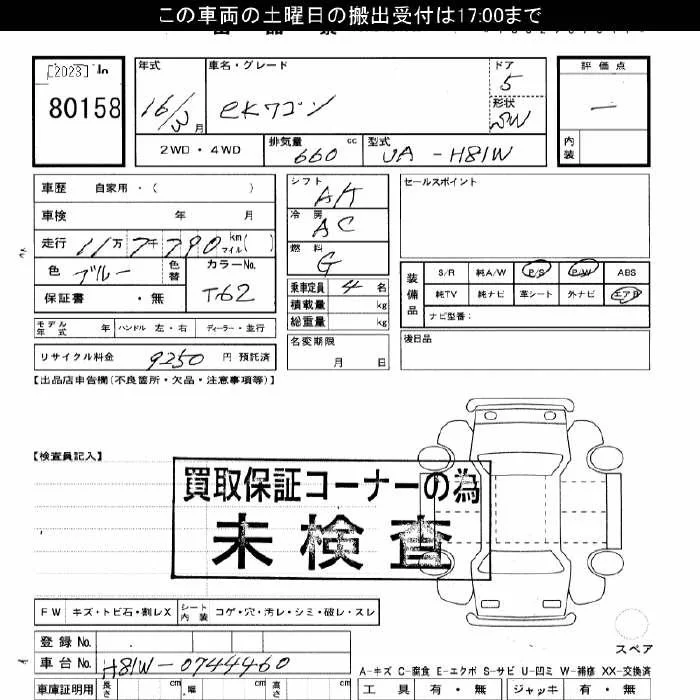 この車両の土曜日の搬出受付は17:00まで
[2023]
80158
年式
16/3月
車名・グレード
eKワゴン
ドア
5
形状
SW
評価点
—
内装
2WD・4WD
排気量 660 cc
型式 UA-H81W
車歴 自家用・( )
車検 年 月
走行 11万7千790 km マイル( )
色 ブルー 色替
カラーNo. T62
保証書 ・無
モデル年式 年 ハンドル 左・右 ディーラー・並行
リサイクル料金 9250 円 預託済
シフト AT
冷房 AC
燃料 G
乗車定員 4 名
積載量 kg
総重量 kg
名変期限
月 日
セールスポイント
装備品
S/R 純A/W P/S P/W ABS
純TV 純ナビ 革シート 外ナビ エアB
ナビ型番:
後日品
【出品店申告欄(不良箇所・欠品・注意事項等)】
【検査員記入】
買取保証コーナーの為
未検査
FW キズ・トビ石・割レX シート内装 コゲ・穴・汚レ・シミ・破レ・スレ
登録No.
車台No. H81W-0744460
車庫証明用 長さ cm 幅 cm 高さ cm
スペア
A-キズ C-腐食 E-エクボ S-サビ U-凹ミ W-補修 XX-交換済
工具 有・無 ジャッキ 有・無